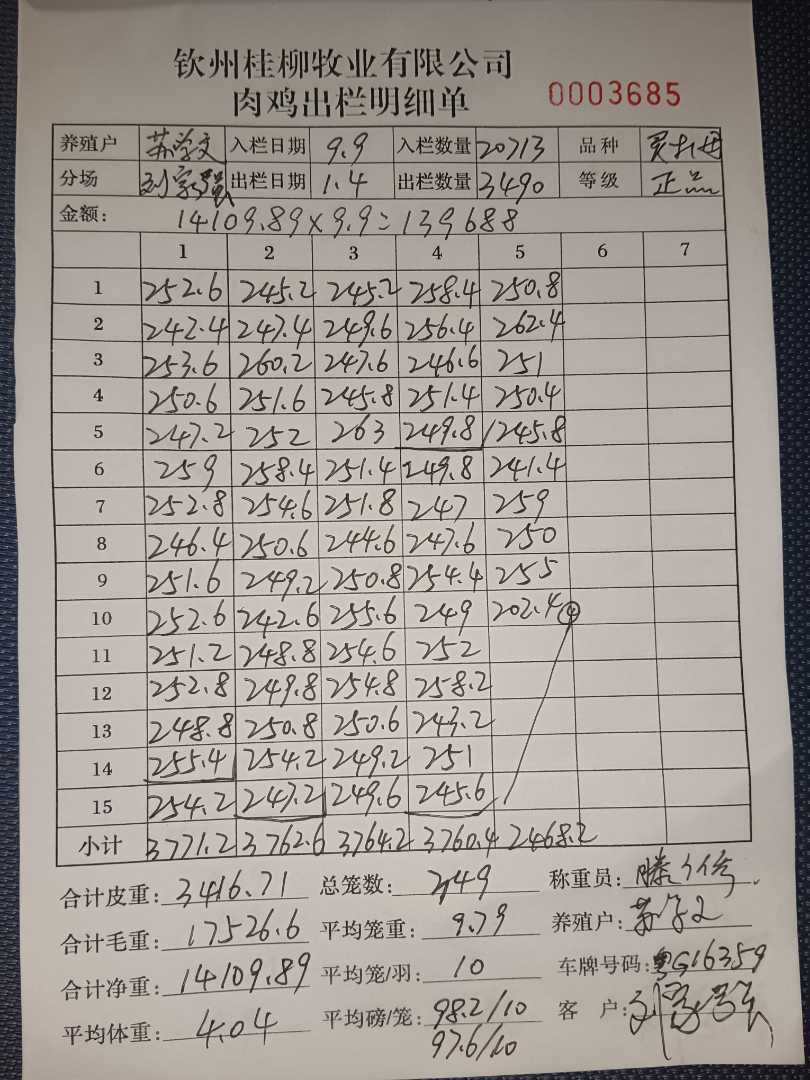 钦州桂柳牧业有限公司
肉鸡出栏明细单 0003685
养殖户 苏学文 入栏日期 9.9 入栏数量 20713 品种
分场 出栏日期 1.4 出栏数量 3490 等级 正品
金额: 14109.89×9.9=139688
1 2 3 4 5 6 7
1 252.6 245.2 245.2 258.4 250.8
2 242.4 247.4 249.6 256.4 262.4
3 253.6 260.2 247.6 246.6 251
4 250.6 251.6 245.8 251.4 250.4
5 247.2 252 263 249.8 245.8
6 259 258.4 251.4 249.8 241.4
7 252.8 254.6 251.8 247 259
8 246.4 250.6 244.6 247.6 250
9 251.6 249.2 250.8 254.4 255
10 252.6 242.6 255.6 249 202.4 ④
11 251.2 248.8 254.6 252
12 252.8 249.8 254.8 258.2
13 248.8 250.8 250.6 243.2
14 255.4 254.2 249.2 251
15 254.2 247.2 249.6 245.6
小计 3771.2 3762.6 3764.2 3760.4 2468.2
合计皮重: 3416.71 总笼数: 349 称重员:
合计毛重: 17526.6 平均笼重: 9.79 养殖户: 苏学文
合计净重: 14109.89 平均笼/羽: 10 车牌号码: 粤G16359
平均体重: 4.04 平均磅/笼: 98.2/10 客 户:
97.6/10